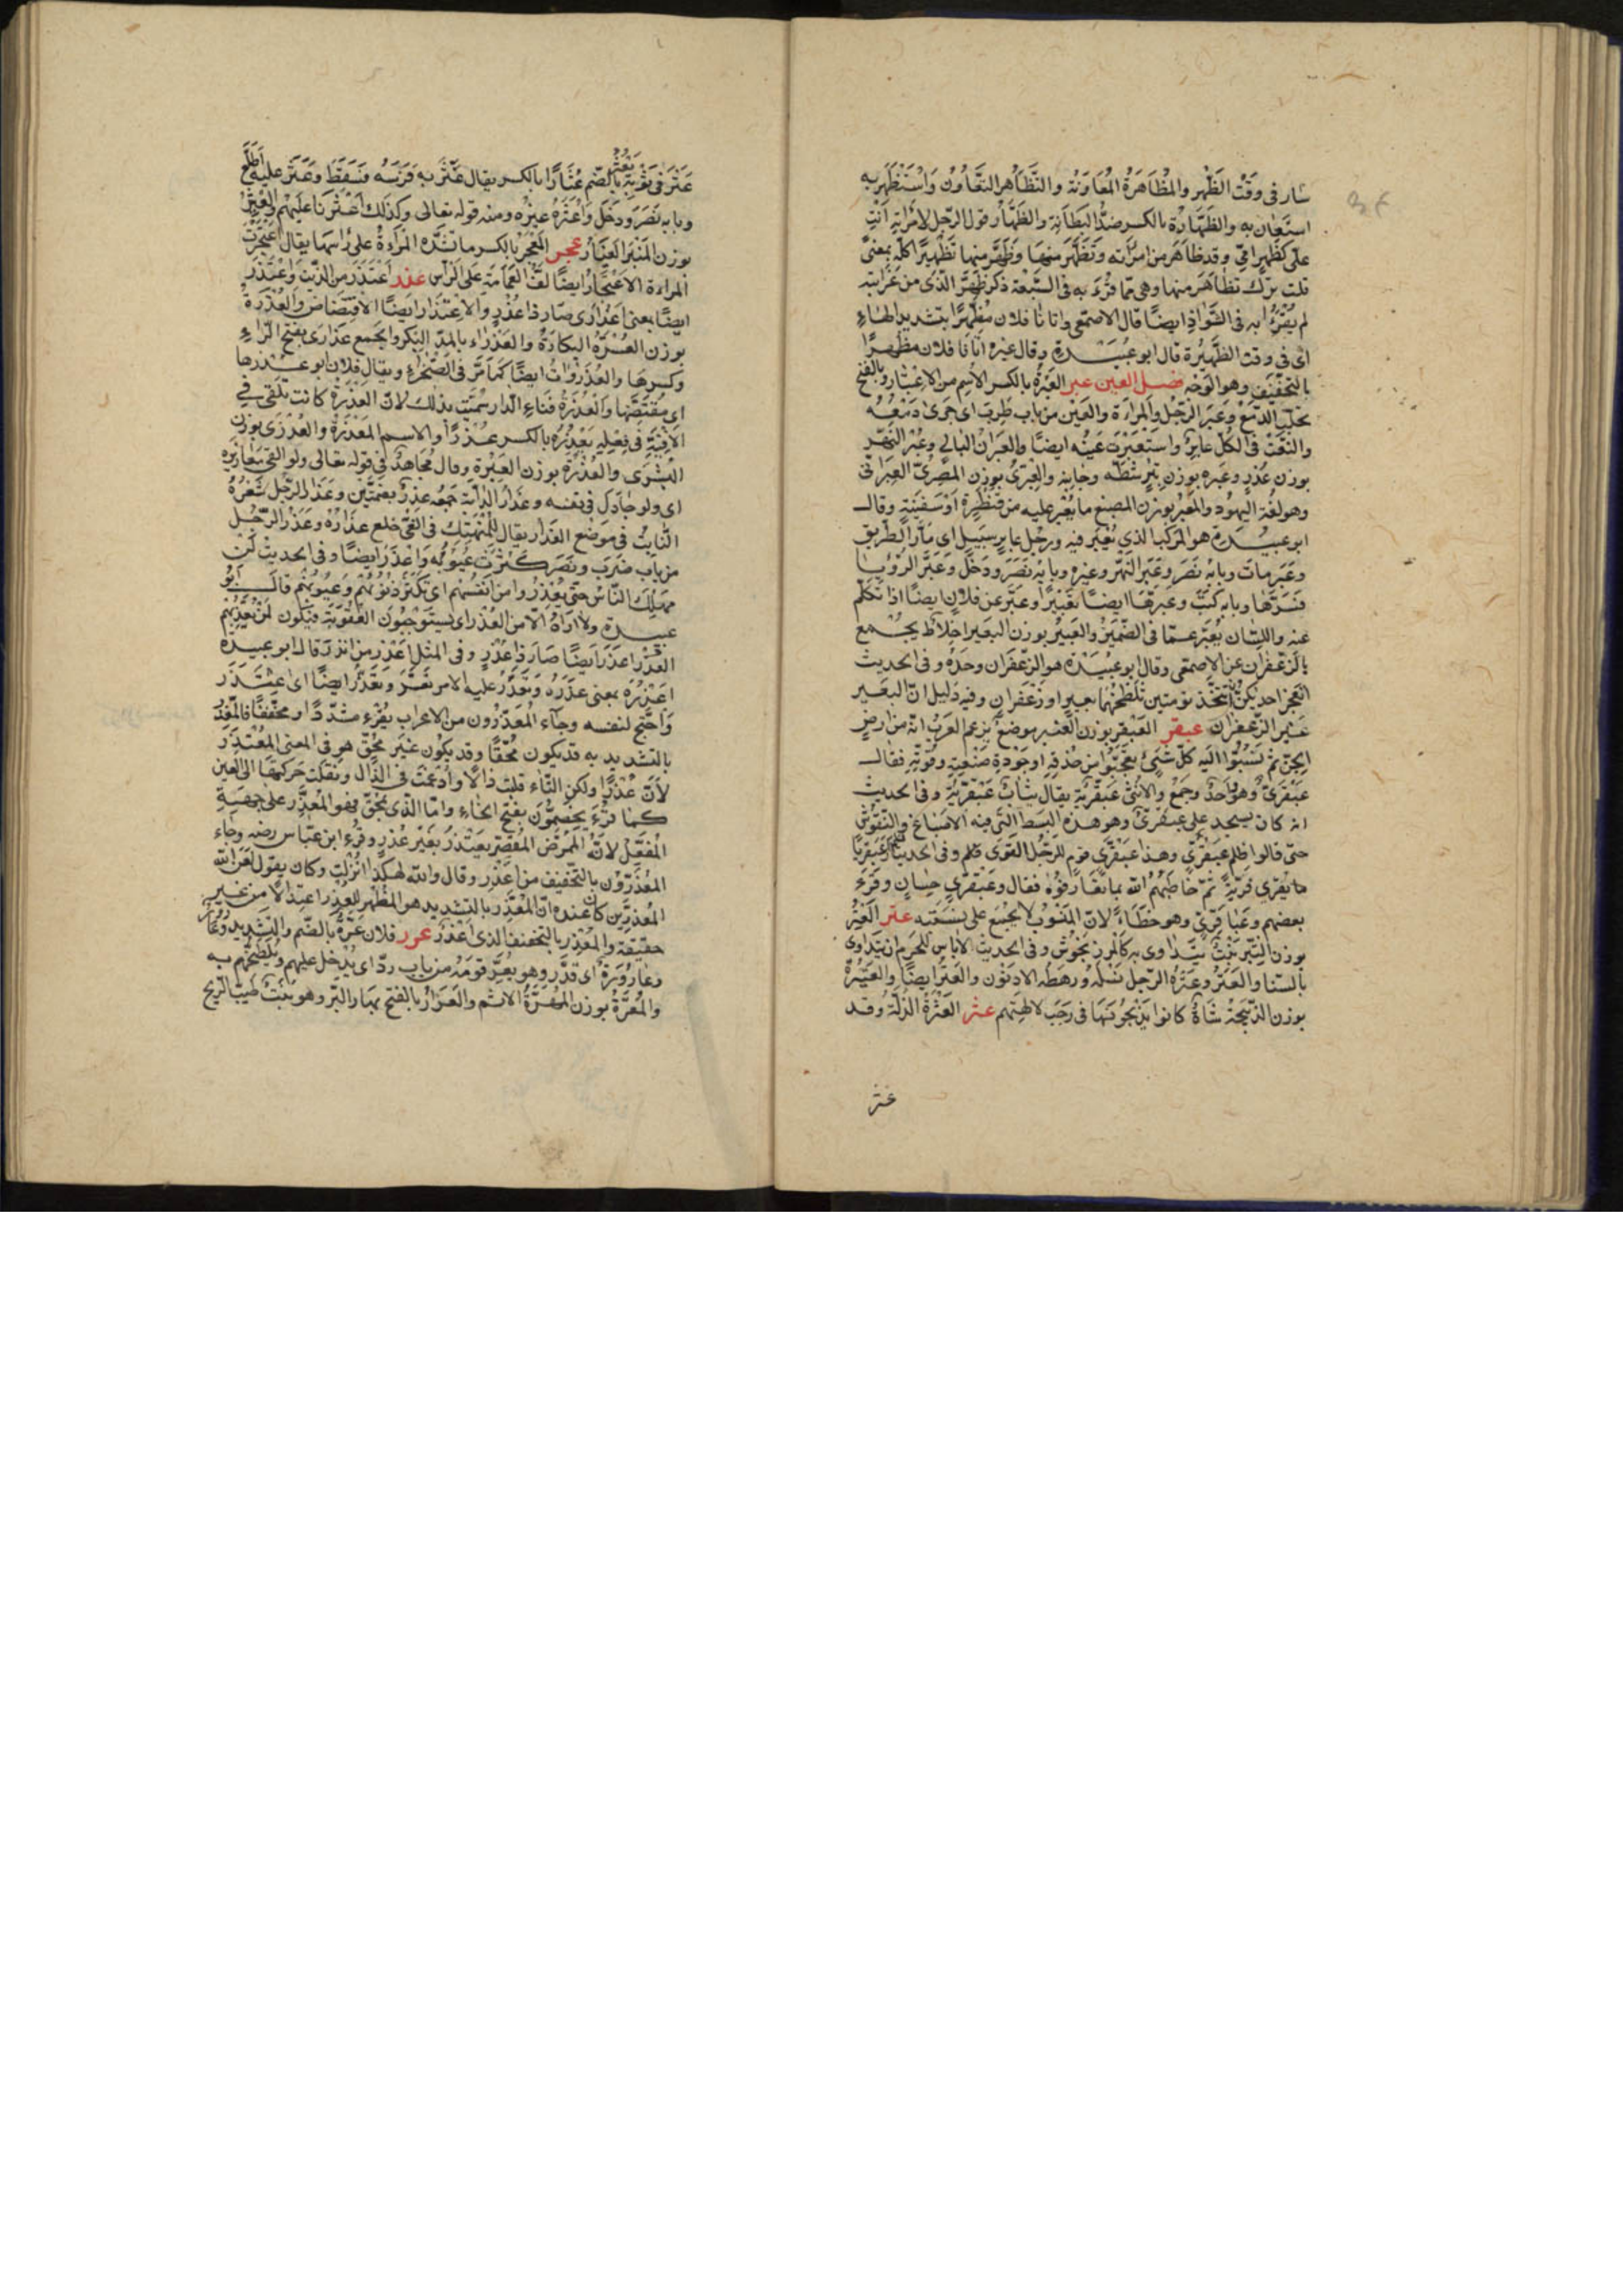 سار فى وَقْت الظّهر والمُظَاهَرَةُ المُعَاوَنَة والتَّظَاهُر التَّعَاوُن وَاسْتَظْهَرَ به
استَعَانَ به والظِهَارَة بالكسر ضدُّ البَطَانَة والظِّهَارُ قول الرّجل لامْرَاتِهِ اَنْتِ
علىّ كظَهْرِ امّى وقد ظَاهَرَ من امْرَأته وتَظَهَّرَ منهَا وَظَهَّرَ منها تَظْهِيرًا كلّه بمعنًى
قلت ترك تظاهَرَ منها وهى مّما قُرِءَ به فى السَّبْعَة ذكر ظَهَّرَ الّذى من غَرَابَته
لم يُقْرَأ به فى الشَّوَاذِ ايضًا قال الاصمعى واتانا فلان مُظَهِّرًا بتشديد الهَاءِ
اى فى وقت الظَّهِيْرَة قال ابو عُبَيْدة وقال غيره اتانا فلان مظهرًا
بالتخفيف وهو الوَجْه فصل العين عبر العِبْرَةُ بالكسر الاسم من الاعْتبَار وبالفتح
تحلّب الدّمع وَعَبَرَ الرّجُل والمرأة والعَيْن من باب طَرِبَ اى جَرَى دَمْعُهُ
والنَّعْتُ فى الكُلّ عابِرٌ واستَعْبَرَت عَيْنُه ايضًا والعَبْرَانُ الباكى وعِبْرُ النّهر
بوزن عُذْرٍ وعَبْرِه بوزن تِبْرٍ شطّه وجَانِبه والعِبْرِىُّ بوزن المصْرِىّ العِبْرَانى
وهو لغُة اليهُود والمَعْبَرُ بوزن المصنع ما يُعْبر عليه من قنطرة اوْ سَفِينَةٍ وقال
ابو عبيدة هو المَرْكَب الذى يُعْبَر فيه ورجُل عابر سَبِيْلٍ اى مَارُّ الطَّرِيْق
وعَبَر مات وبابُه نَصَرَ وعَبَرَ النَّهر وغيره وبابُه نَصَرَ ودَخَلَ وَعَبَرَ الرُّؤْيَا
فَسَّرَهَا وبابه كَتَبَ وعَبّرَهَا ايضًا تَعْبِيْرًا وعَبَّر عن فلانٍ ايضًا اذا تكلّم
عنه واللّسَان يُعَبِّر عمّا فى الضّمِيْرِ والعَبِيْرُ بوزن البَعِير اخلَاط يجُمع
بالزّعْفران عن الاصمعى وقال ابو عبيْدَة هو الزّعْفَرَان وحدَهُ وفى الحديث
اتَعْجَز احديكنّ ان تتّخذ تومتين تلطّخهما بعبير اوزعْفران وفيه دليل انّ العبير
غير الزّعفران عبقر العَبْقر بوزن العنبر موضع يزعم العَرَبُ انّه من ارض
الجِنّ ثمّ نسَبُوا اليه كلّ شئٍ تعجّبُوا من حُذقِهِ اوجَوْدةِ صَنْعَتِه وقُوّتِه فقال
عبْقَرِىٌّ وهو وَاحدٌ وجمعٌ والانثىَ عَبْقَريّة يقال ثيابٌ عَبْقَرِيّة وفى الحديث
انّه كان يسجد على عبقرىّ وهو هذه البُسُط الّتى فيه الاصباغ والنّقوش
حتّى قالوا ظلم عبقرىّ وهذا عبْقَرىّ قوم للرّجُل القوى وفى الحديث فلم ار عَبْقريًّا
ما يَفْرِى فَريّهُ ثمّ خَاطَبَهُمُ الله بما تَعَارَفُوْه فقال وعَبْقَرِىٍّ حِسَانٍ وقرءَ
بعضهم وعَبَاقَرِىٍّ وهو خطَاءٌ لانّ المنسُوْبَ لا يُجْمَع على نسبته عتر العِتْرُ
بوزن التِّبْر نَبْتٌ يُتَدَاوى به كالمرزنجوش وفى الحديث لا باس للمحرم ان يتداوى
بالسّنا والعِتْر وعِتْرةُ الرّجل نَسْلُهُ ورهطه الادنون والعِتْرُ ايضًا والعَتِيْرَةُ
بوزن الذَّبِيْحَة شَاةٌ كانوا يَذْبَحُونَها فى رَجَبَ لالهَتِهم عثر العَثْرَةُ الزّلّة وقد
عثر
عَثَرَ فى ثَوْبِه يَعْثُرُ بالضّم عِثَارًا بالكسر يقال عَثَرَ به فَرَسُه فسَقَطَ وعَثَرَ عليه اطَّلَع
وبابه نَصَرَ ودَخَلَ واعْثَرَهُ غيرُه ومنه قوله تعالى وكذلك اَعْثَرْنا عَليْهم والعِثْيَر
بوزن المِنْبَر الغُبَارُ عجر المِعْجَر بالكسر ما تشدّه المَرْاةُ على رَاسها يقال اعْتَجَرَت
المراءة الاعْتِجَارُ ايضًا لَفُّ العِمَامَة على الرَّأس عذر اعْتَذَرَ من الذَّنب وَاعْتَذَرَ
ايضًا بمعنى اعذَرَ اى صَار ذا عُذْرٍ والاعْتِذَارُ ايضًا الاقْتِضَاضُ والعُذْرَةُ
بوزن العُسْرَة البكَارَةُ والعَذْرَاء بالمدّ البِكْر والجمع عذَارَى بفتح الرَّاءِ
وكسرها والعُذْرَاوَاتُ ايضًا كمَا مَرَّ فى الصّحْرَاء ويقال فلان ابو عُذْرها
اى مُقْتَضُّهَا والعَذِرَةُ فِنَاءِ الدّار سُمِّيَت بذلك لانّ العَذِرَة كانت تُلْقى فى
الاَفْنِيَة فى فِعْلِه يَعْذِرُهُ بالكسر عُذْرًا والاسم المَعْذِرَةُ والعُذْرَى بوزن
البُشْرَى والعِذْرَةُ بوزن العِبْرَة وقال مُجَاهد فى قوله تعالى ولو القى مَعَاذيره
اى ولو جَادَل فى نفسه وعِذَارُ الدّابّة جَمْعُه عذُرٌ بضمّتين وعِذَارُ الرّجل شَعْرُهُ
النّابِتُ فى مَوْضع العِذَار يقال للمُنْهَمِك فى الغَىّ خلع عِذَارَهُ وعَذَرَ الرّجُل
من باب ضَرَبَ ونَصَرَ كَثُرَتْ عُيُوبُه وَاعْذَرَ ايضًا وفى الحديث لَنْ
يَهْلِكَ النّاس حتّى يُعْذِرُوا من انفُسِهم اى تكثُرَ ذُنُوْبُهُمْ وعُيُوبُهُم قال ابُو
عبيدة ولا ارَاهُ الّا من العُذْر اى يستَوجِبُون العُقُوبَة فيكون لمَنْ يُعَذِّبُهم
العُذْرُ اعذَرَ ايضًا صَارَ ذا عُذْرٍ وفى المثل اَعْذَرَ من انْذَرَ قال ابو عبيدة
اعْذَرَهُ بمعنى عَذَرَهُ وتَعَذَّرَ عليه الامر تعَسَّرَ وتَعَذَّرَ ايضًا اى اعْتَذَرَ
وَاحْتَجّ لنفسه وجَآء المُعَذِّرُونَ من الاعراب يُقْرء مشدّدًا ومخفّفًا فالمُعَذِّرُ
بالتشديد به قد يكون مُحِقًّا وقد يكون غَيْرَ مُحِقٍّ هو فى المعنى المُعْتَذِرُ
لاَنّ عُذْرًا ولكن التّاء قلبت ذالًا وادْغِمَتْ فى الذّال ونُقلت حركتها الى العين
كما قُرِءَ يَخَصِّمُونَ بفتح الخَاءِ وامّا الّذى بمُحِقّ فهو المُعَذِّر على جهَةِ
المُفَعِّلْ لانَّه المُمَرِّض المُقَصِّر يَعْتَذِرُ بغَيْر عُذْرٍ وقرء ابن عبّاس رضه وجاء
المُعْذِرُوْنَ بالتّخفيف من اعْذَر وقال والله لهكذا اُنْزلتْ وكان يقول لعَن الله
المُعَذِّرِيْن كان عنده انّ المُعَذِّر بالتّشديد هو المُظْهر للعُذر اعتِلالًا من غير
حقيقة والمُعْذِر بالتخفيف الذى اعْذَرَ عرر فلان عُرّةٌ بالضّم والتّشديد وعَارُورٌ
وعَارُورَةٌ اى قَذِرٌ وهو يَعُرُّ قومَهُ من باب ردّ اى يُدْخل عليهم ويُلطّخُهم به
والمَعَرَّةُ بوزن المَبَرَّةُ الاثم والعَرَارُ بالفتح بهار البرّ وهو نَبْتٌ طَيّب الرّيح